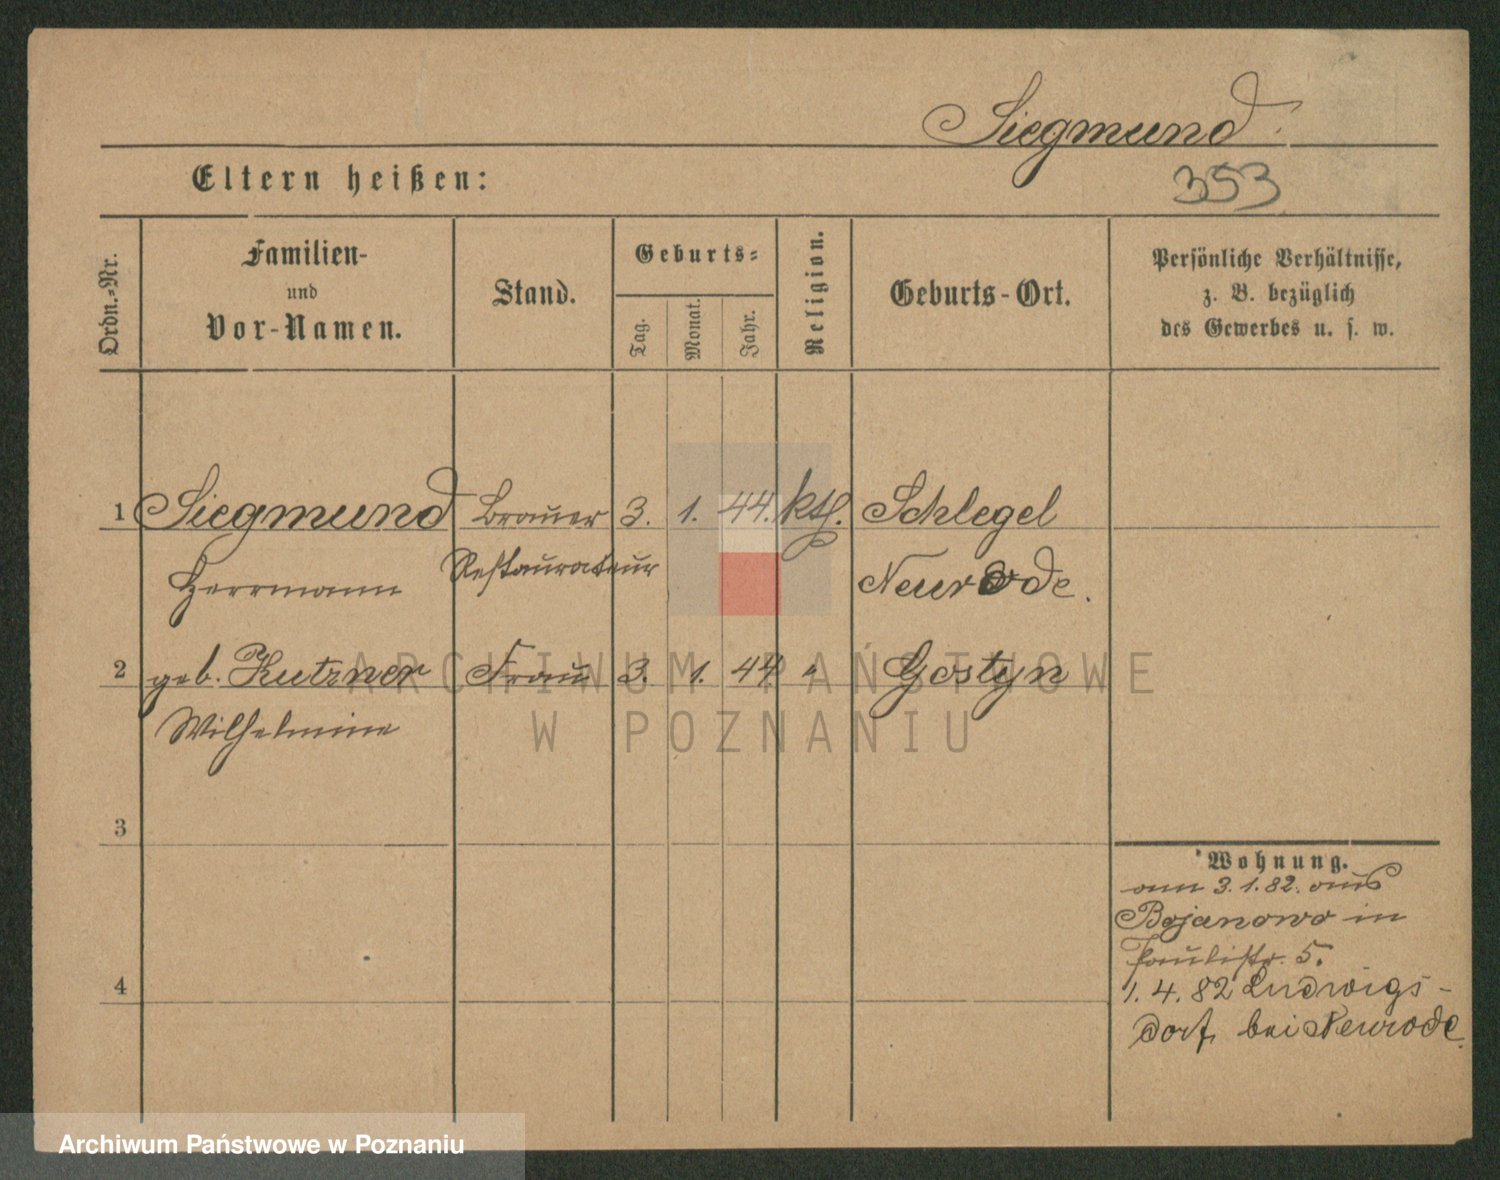 Siegmund
Eltern heißen:
353
Ordn.-Nr.
Familien-
und
Vor-Namen.
Stand.
Geburts-
Tag.
Monat.
Jahr.
Religion.
Geburts-Ort.
Persönliche Verhältnisse,
z. B. bezüglich
des Gewerbes u. s. w.
1 Siegmund Brauer 3. 1. 44. kth. Schlegel
Herrmann Restaurateur Neurode.
2 geb. Kutzner Frau 3. 1. 44 " Gostyn
Wilhelmine
3
4
Wohnung.
am 3.1.82. aus
Bojanowo in
Paulistr. 5.
1. 4. 82 Ludwigs-
dorf bei Neurode.
ARCHIWUM PAŃSTWOWE
W POZNANIU
Archiwum Państwowe w Poznaniu